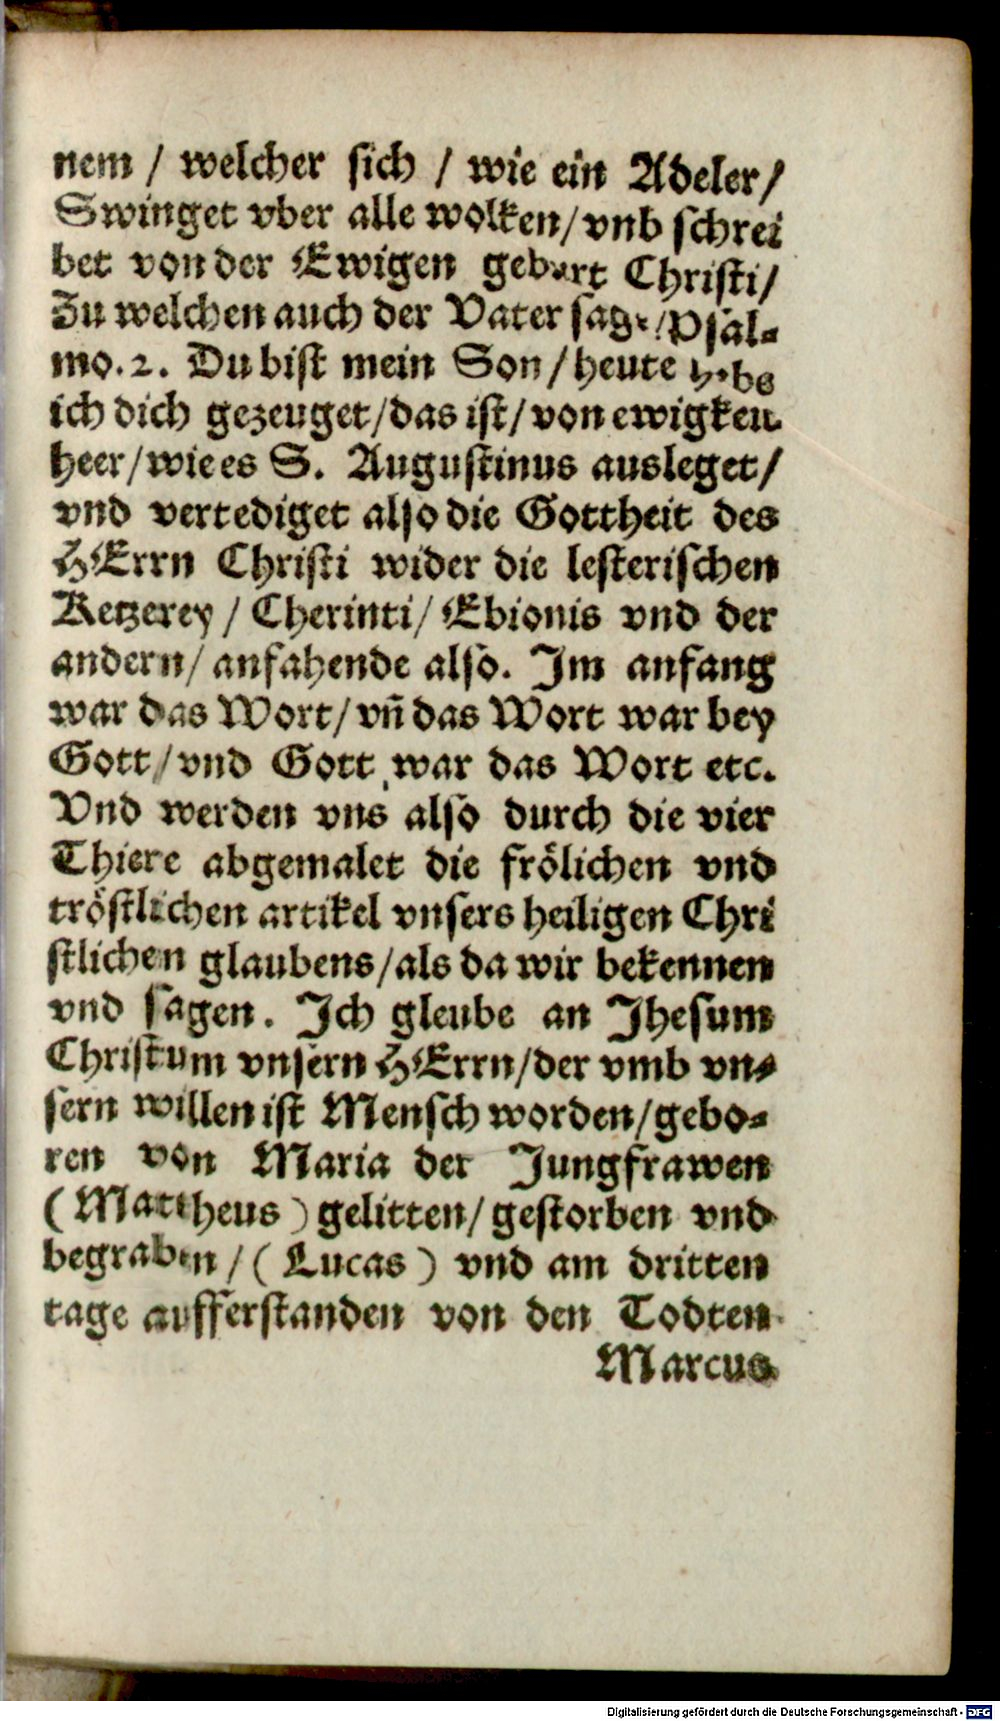 nem / welcher sich / wie ein Adeler /
Swinget vber alle wolken / vnb schrei
bet von der Ewigen geburt Christi /
Zu welchen auch der Vater sagt / Psal-
mo. 2. Du bist mein Son / heute habe
ich dich gezeuget / das ist / von ewigkeit
heer / wie es S. Augustinus ausleget /
vnd vertediget also die Gottheit des
HErrn Christi wider die lesterischen
Ketzerey / Cherinti / Ebionis vnd der
andern / anfahende also. Im anfang
war das Wort / vn̄ das Wort war bey
Gott / vnd Gott war das Wort etc.
Vnd werden vns also durch die vier
Thiere abgemalet die frölichen vnd
tröstlichen artikel vnsers heiligen Chri
stlichen glaubens / als da wir bekennen
vnd sagen. Ich gleube an Jhesum
Christum vnsern HErrn / der vmb vn-
sern willen ist Mensch worden / gebo-
ren von Maria der Jungfrawen
( Mattheus ) gelitten / gestorben vnd
begraben / ( Lucas ) vnd am dritten
tage aufferstanden von den Todten
Marcus
Digitalisierung gefördert durch die Deutsche Forschungsgemeinschaft - DFG